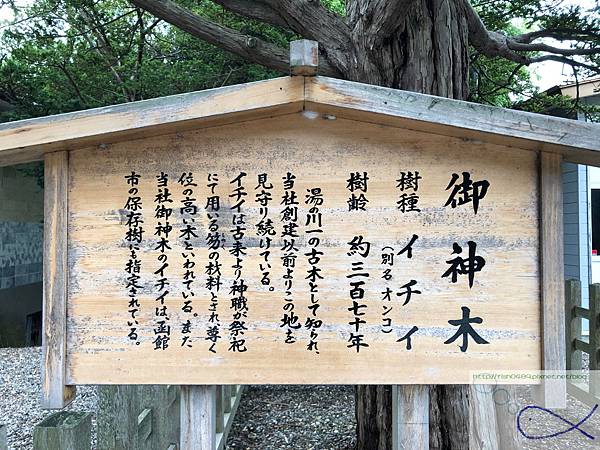 御神木
樹種 イチイ
（別名 オンコ）
樹齢 約三百七十年
湯川一の古木として知られ、
当社創建以前よりこの地を
見守り続けている。
イチイは古来より神職が祭祀
にて用いる笏の材料とされ尊く
位の高い木といわれている。また
当社御神木のイチイは、函館
市の保存樹にも指定されている。
http://rish0484.pixnet.net/blog